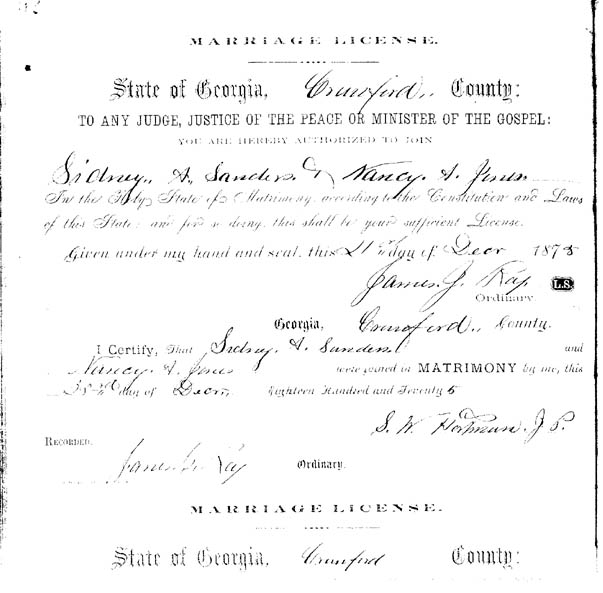 MARRIAGE LICENSE.
State of Georgia, Crawford County:
TO ANY JUDGE, JUSTICE OF THE PEACE OR MINISTER OF THE GOSPEL:
YOU ARE HEREBY AUTHORIZED TO JOIN
Sidney A. Sanders & Nancy A. Jones
In the Holy State of Matrimony, according to the Constitution and Laws
of this State; and for so doing, this shall be your sufficient License.
Given under my hand and seal, this day of Decr 1875
James J. Ray L.S.
Ordinary.
Georgia, Crawford County.
I Certify, That Sidney A. Sanders and
Nancy A. Jones were joined in MATRIMONY by me, this
day of Decr Eighteen Hundred and Seventy 5
S. W. J. P.
RECORDED.
James J. Ray Ordinary.
MARRIAGE LICENSE.
State of Georgia, Crawford County: